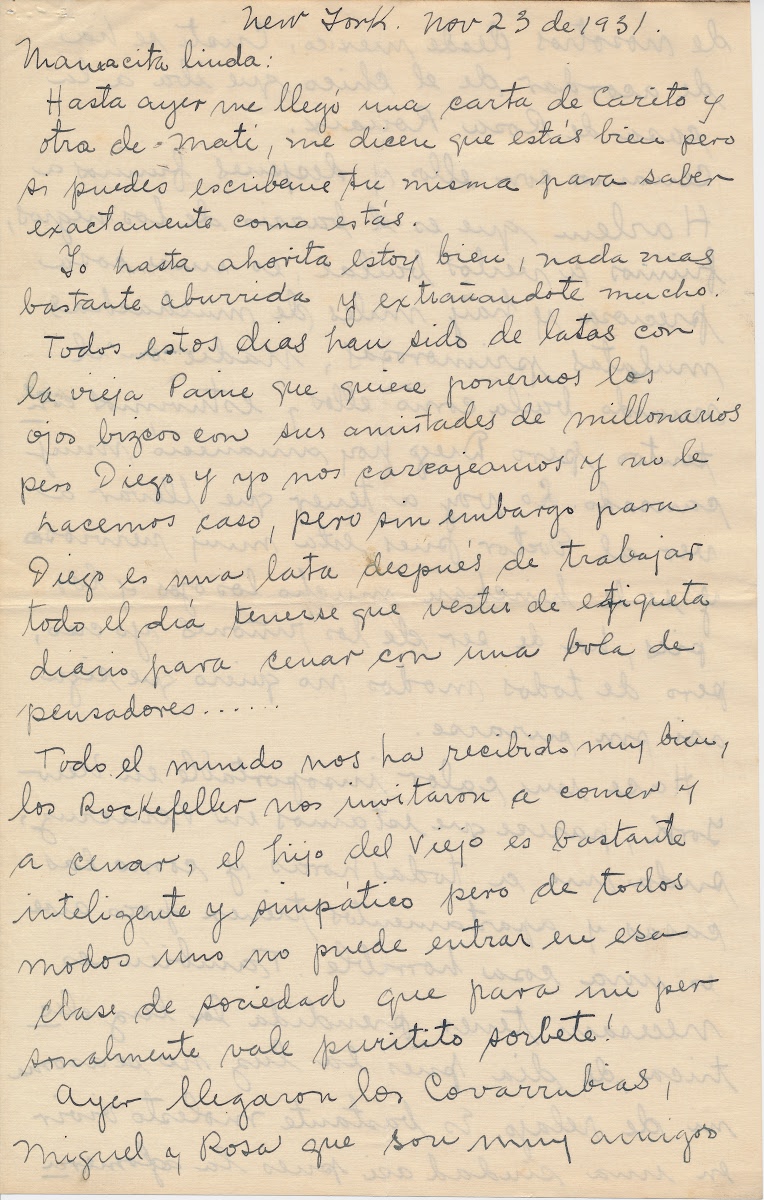 New York. Nov 23 de 1931.
Mamacita linda:
Hasta ayer me llegó una carta de Carito y
otra de Mati, me dicen que estás bien pero
si puedes escribeme tu misma para saber
exactamente como estás.
Yo hasta ahorita estoy bien, nada mas
bastante aburrida y extrañandote mucho.
Todos estos dias han sido de latas con
la vieja Paine que quiere ponernos los
ojos bizcos con sus amistades de millonarios
pero Diego y yo nos carcajeamos y no le
hacemos caso, pero sin embargo para
Diego es una lata después de trabajar
todo el día tenerse que vestir de etiqueta
diario para cenar con una bola de
pensadores......
Todo el mundo nos ha recibido muy bien,
los Rockefeller nos invitaron a comer y
a cenar, el hijo del Viejo es bastante
inteligente y simpático pero de todos
modos uno no puede entrar en esa
clase de sociedad que para mi per
sonalmente vale puritito sorbete!
Ayer llegaron los Covarrubias,
Miguel y Rosa que son muy amigos